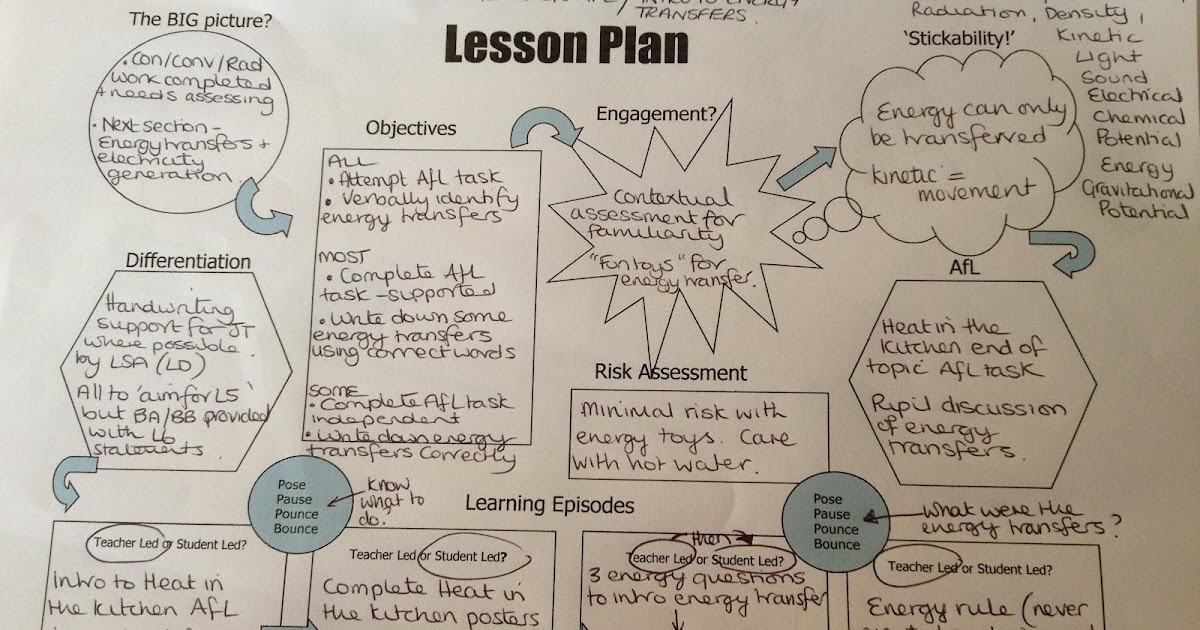 TRANSFERS.
Lesson Plan
The BIG picture?
• Con/Conv/Rad
work completed
+ needs assessing
• Next section -
Energy transfers +
electricity
generation.
Objectives
ALL
• Attempt AfL task
• Verbally identify
energy transfers
MOST
• Complete AfL
task - supported
• Write down some
energy transfers
using correct words
SOME
• Complete AfL task
independent
• Write down energy
transfers correctly
Engagement?
Contextual
assessment for
familiarity
"Fun toys" for
energy transfer.
'Stickability!'
Energy can only
be transferred
Kinetic =
movement
Radiation, Density,
Kinetic
Light
Sound
Electrical
Chemical
Potential
Energy
Gravitational
Potential
Differentiation
Handwriting
support for JT
where possible.
by LSA (LD)
All to 'aim for L5'
but BA/BB provided
with L6
statements.
Risk Assessment
Minimal risk with
energy toys. Care
with hot water.
AfL
Heat in the
Kitchen end of
topic AfL task
Pupil discussion
of energy
transfers.
Learning Episodes
Pose
Pause
Pounce
Bounce
Know
what to
do.
Pose
Pause
Pounce
Bounce
What were the
energy transfers?
Teacher Led or Student Led?
Intro to Heat in
the Kitchen AfL
Teacher Led or Student Led?
Complete Heat in
the Kitchen posters
then
Teacher Led or Student Led?
3 energy questions
to intro energy transfer
Teacher Led or Student Led?
Energy rule (never